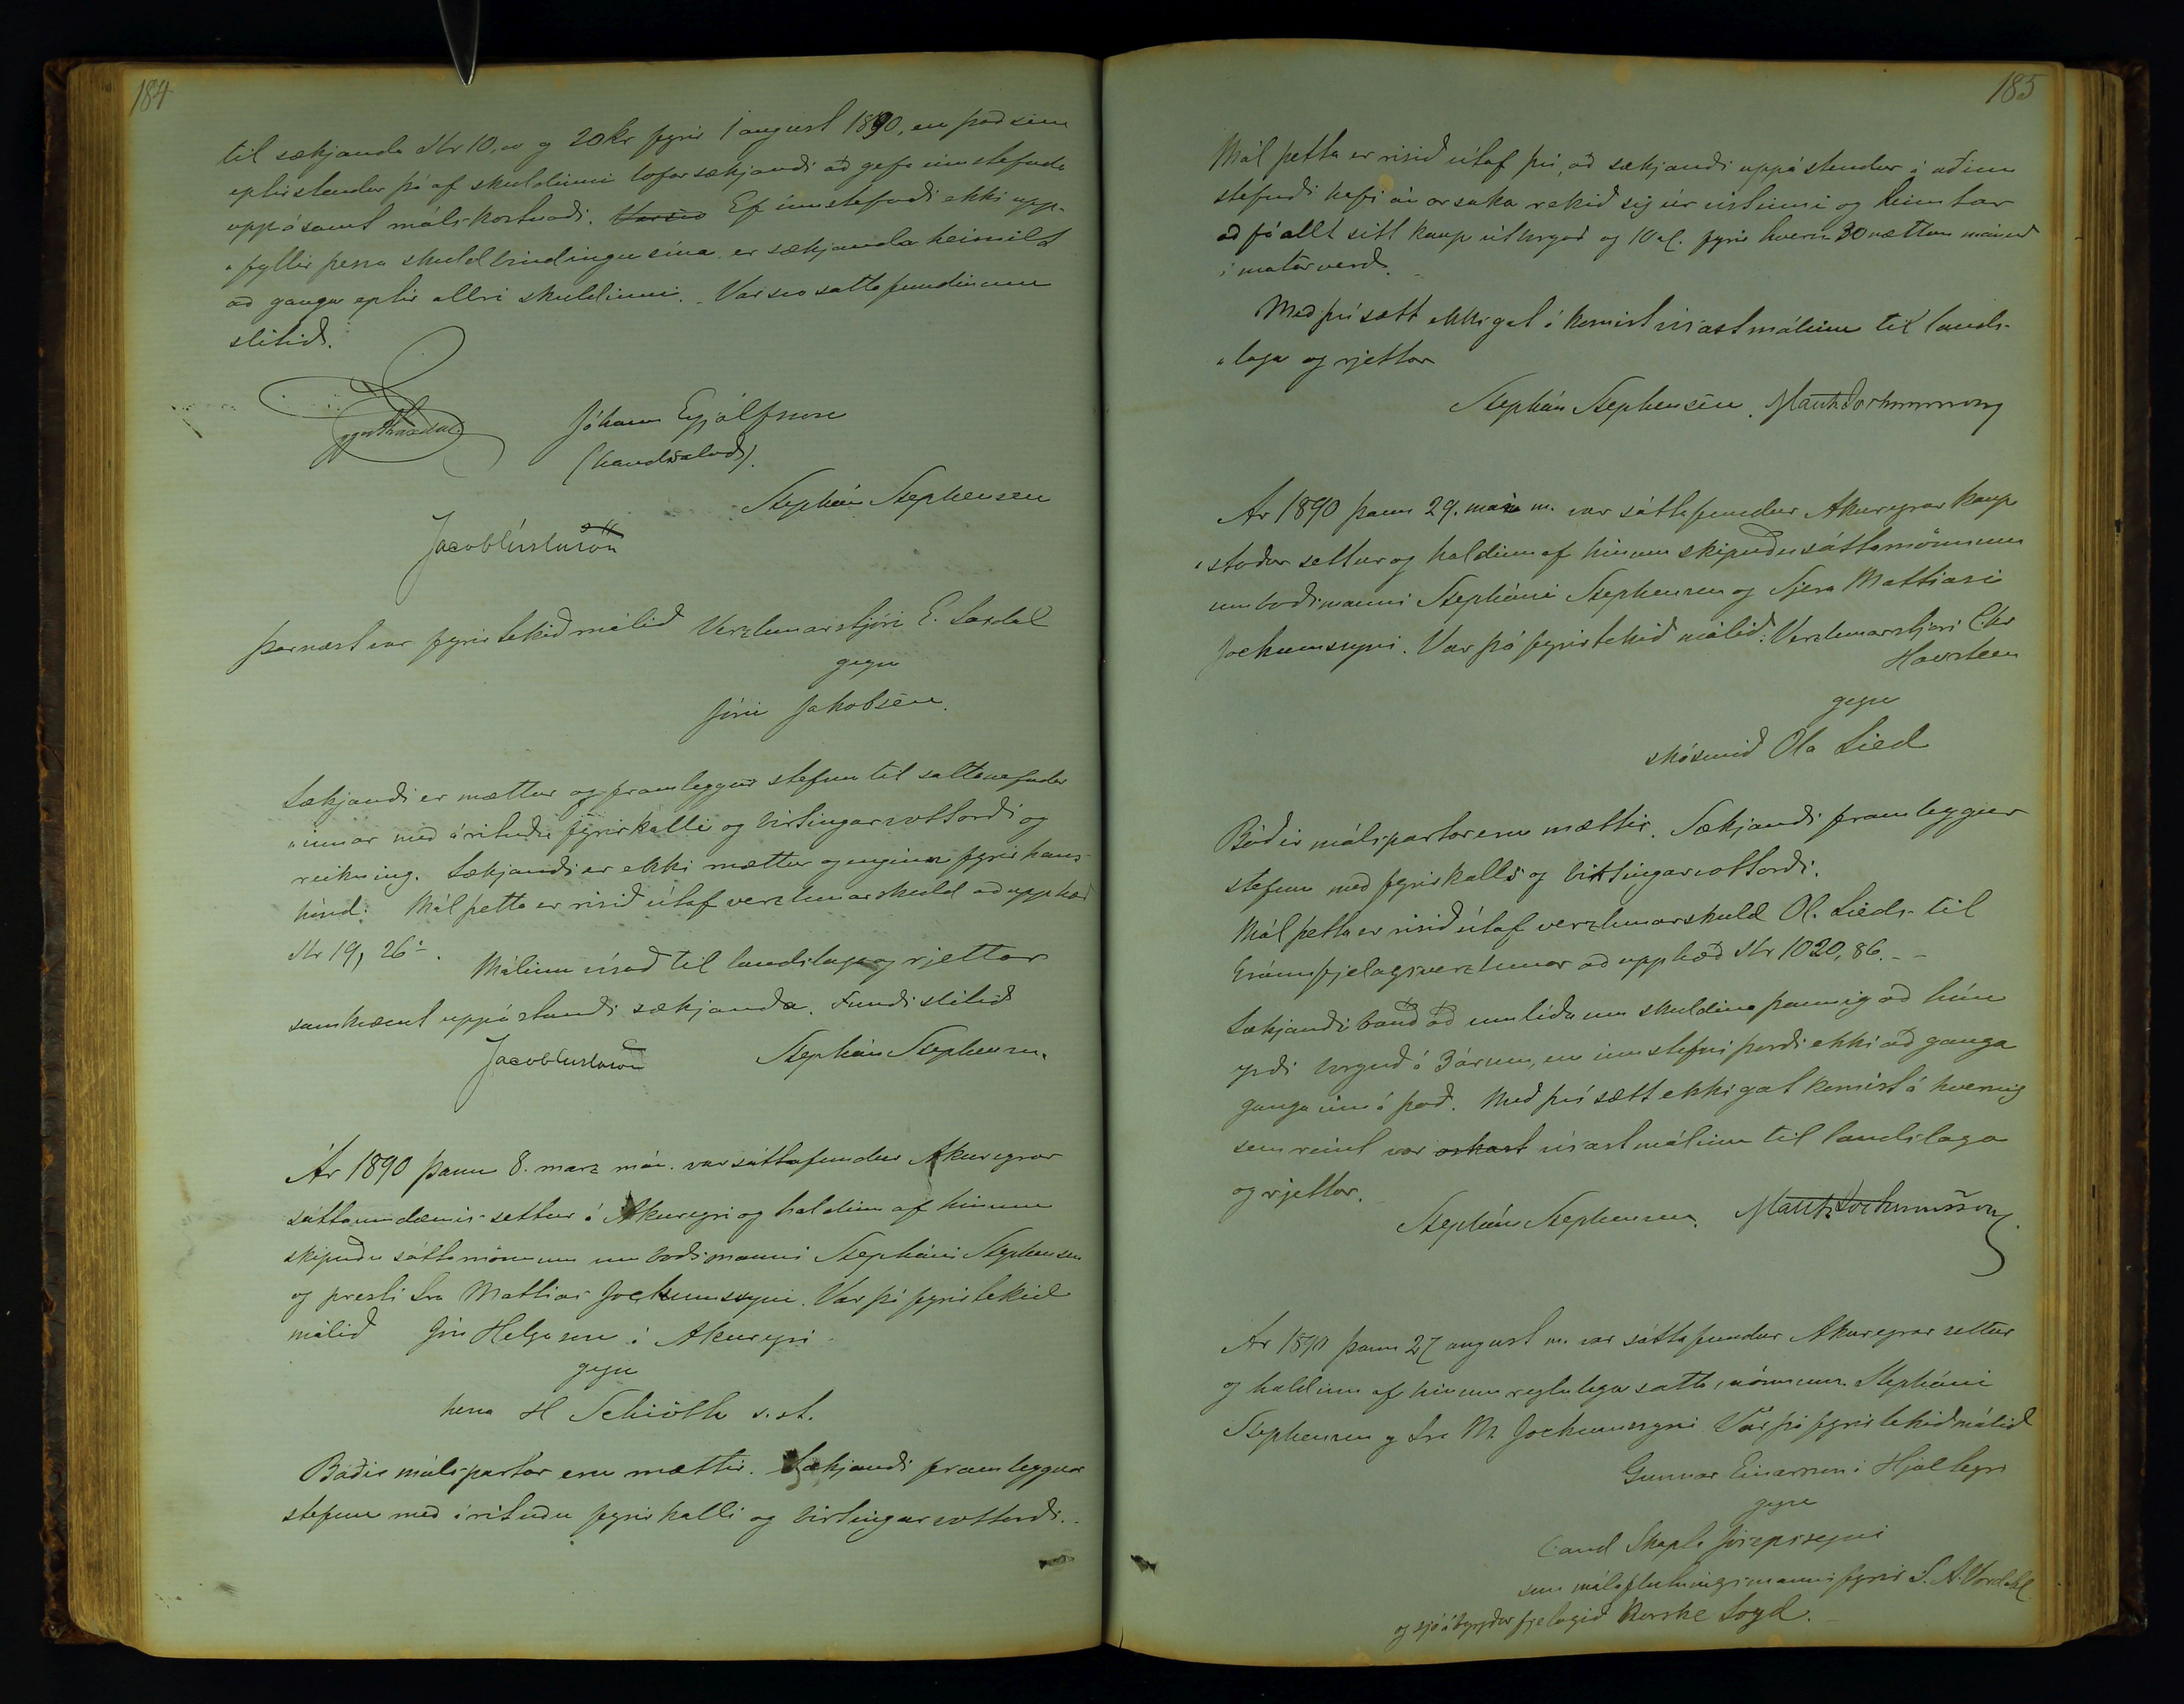 184
til sækjanda Kr 10,00 og 20 kr fyrir 1 august 1890, en það sem
eptirstendur þá af skuldinni lofar sækjandi að gefa innstefnda
upp ásamt málskostnaði. Var svo Ef innstefndi ekki upp-
„fyllir þessa skuldbindingu sína, er sækjanda heimilt
að ganga eptir allri skuldinni. Var svo sáttafundinum
slitið.
Jóhann Eyjólfsson
(handsalað).
Stephán Stephensen
Jacob Gíslason
Þarnæst var fyrirtekið málið Verzlunarstjóri E. Laxdal
gegn
Jóni Jakobsen.
Sækjandi er mættur og framleggur stefnu til sáttanefndar
„innar með árituðu fyrirkalli og birtingarvottorði og
reikning. Sækjandi er ekki mættur og enginn fyrir hans
hönd. Mál þetta er risið útaf verzlunarskuld að upphæð
Kr 19, 26.
Málinu vísað til landslaga og rjettar
samkvæmt uppástandi sækjanda. Fundi slitið
Jacob Gíslason Stephán Stephensen.
Ár 1890 þann 8. marz mán. var sáttafundur Akureyrar
sáttaumdæmis settur á Akureyri og haldinn af hinum
skipuðu sáttamönnum umboðsmanni Stepháni Stephensen
og presti Sra Mattias Jochumssyni. Var þá fyrirtekið
málið Jón Helgason á Akureyri
gegn
herra H Schiöth s. st.
Báðir málspartar eru mættir. Sækjandi framleggur
stefnu með árituðu fyrirkalli og birtingarvottorði.
185
Mál þetta er risið útaf því, að sækjandi uppástendur að inn
stefndi hafi án orsaka rekið sig úr vistinni og heimtar
að fá allt sitt kaup útborgað og 10 al. fyrir hvern 30 nættan mánuð
í matarverð.
Með því sætt ekki gat á komist vísast málinu til lands-
„laga og rjettar
Stephán Stephensen. Matth Jochumsson
Ár 1890 þann 29. mai m. var sáttafundur Akureyrar kaup
„staðar settur og haldinn af hinum skipuðu sáttamönnum
umboðsmanni Stepháni Stephensen og Sjera Mattiasi
Jochumssyni. Var þá fyrirtekið málið: Verzlunarstjóri Chr
Havsteen
gegn
skósmið Ola Lied
Báðir málspartar eru mættir. Sækjandi framleggur
stefnu með fyrirkalli og birtingarvottorði.
Mál þetta er risið útaf verzlunarskuld Ol. Lieds til
Gránufjelagsverzlunar að upphæð Kr 1020,86. - -
Sækjandi bauð að umlíða um skuldina þannig að hún
yrði borguð á 3 árum, en innstefndi þorði ekki að ganga
ganga inn á það. Með því sætt ekki gat komist á hvernig
sem reint var vísast málinu til landslaga
og rjettar.
Stephán Stephensen. Matth Jochumsson
Ár 1890 þann 27 august m. var sáttafundur Akureyrar settur
og haldinn af hinum reglulegu sáttamönnum Stepháni
Stephensen og Sra M. Jochumssyni Var þá fyrirtekið málið
Gunnar Einarsson í Hjalteyri
gegn
Cand Skapta Jósepssyni
sem málaflutningsmanni fyrir S. A. Vordahl
og sjóábyrgðar fjelagið Norske Loyd.